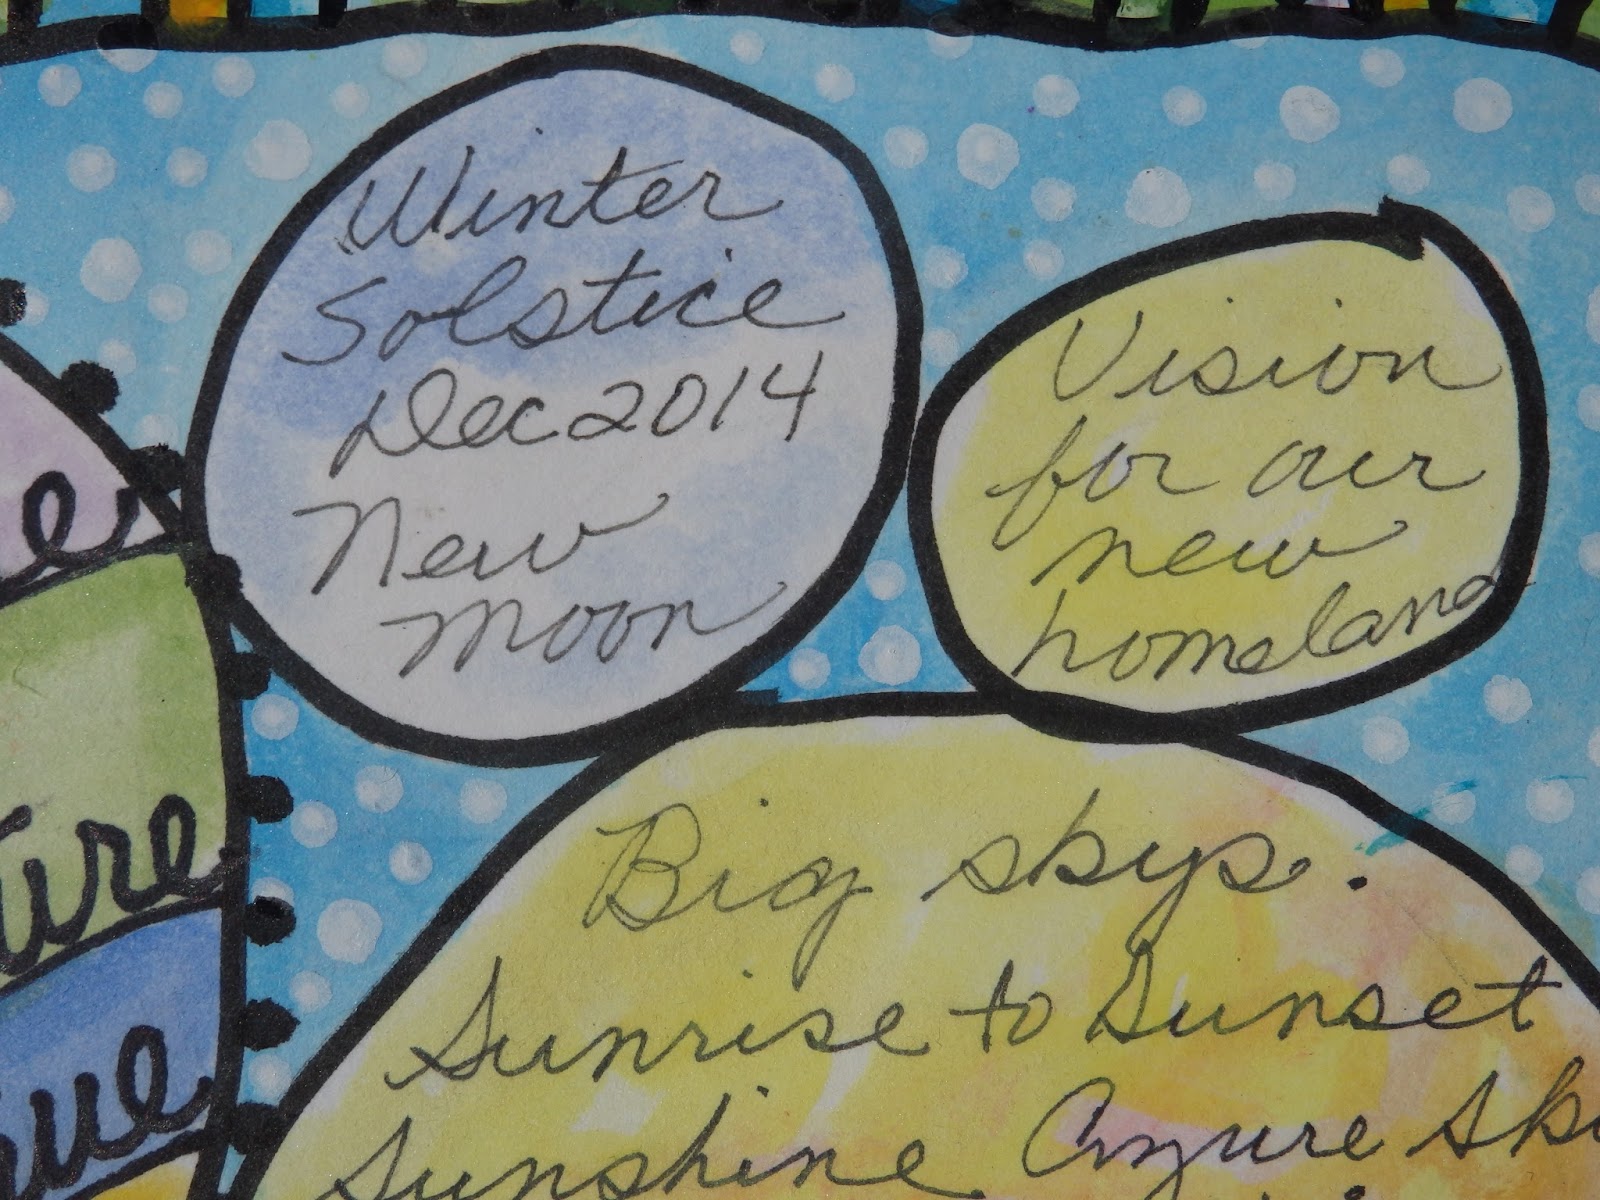 Winter
Solstice
Dec 2014
New
Moon
Vision
for our
new
homeland
Big skys.
Sunrise to Sunset
Sunshine Azure